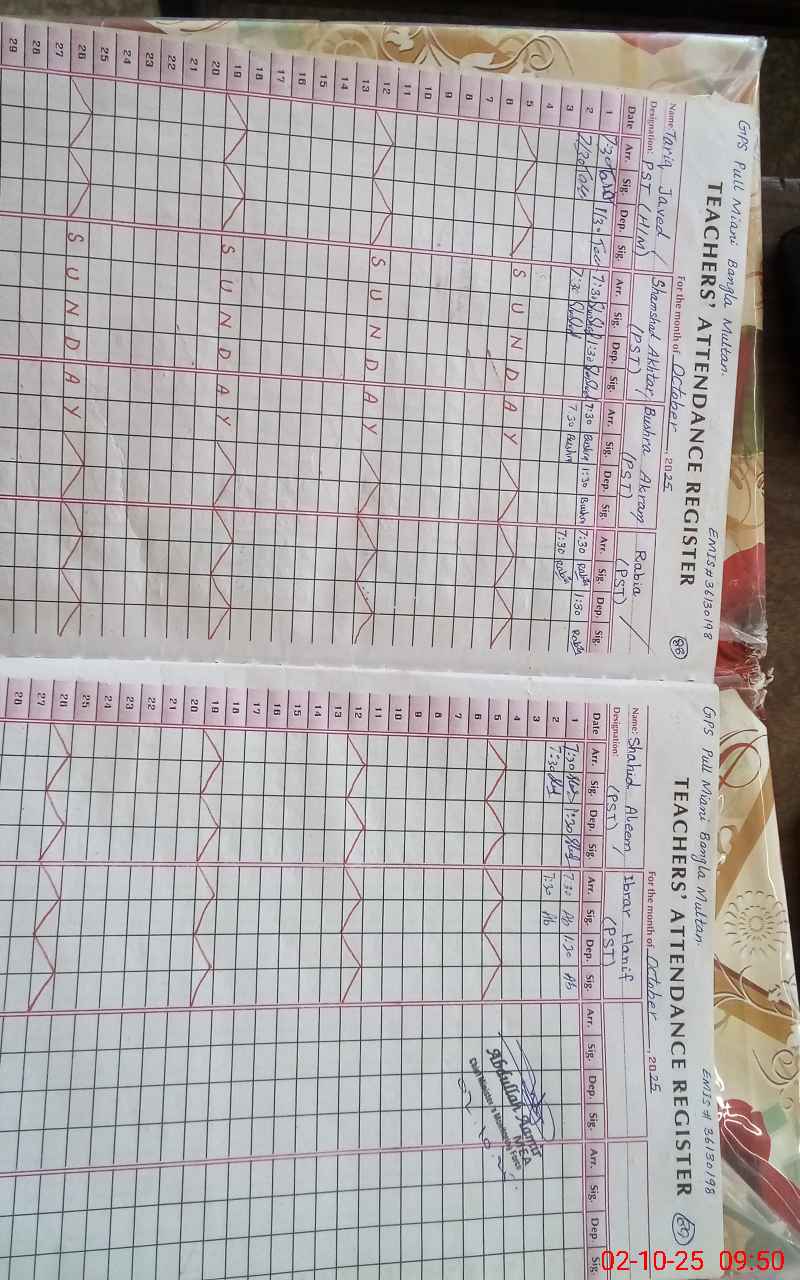 GPS Pull Miani Bangla Multan. EMIS# 36130198
TEACHERS' ATTENDANCE REGISTER 88
For the month of October, 2025
Name: Tariq Javed / Shamshad Akhtar / Bushra Akram / Rabia /
Designation: PST (H/M) (PST) (PST) (PST)
Date Arr. Sig. Dep. Sig. Arr. Sig. Dep. Sig. Arr. Sig. Dep. Sig. Arr. Sig. Dep. Sig.
1 7:30 1:30 7:30 1:30 7:30 Bushra 1:30 Bushra 7:30 Rabia 1:30 Rabia
2 7:30 7:30 7:30 Bushra 7:30 Rabia
3
4
5 SUNDAY
6
7
8
9
10
11
12 SUNDAY
13
14
15
16
17
18
19 SUNDAY
20
21
22
23
24
25
26 SUNDAY
27
28
29
GPS Pull Miani Bangla Multan. EMIS# 36130198
TEACHERS' ATTENDANCE REGISTER 89
For the month of October, 2025
Name: Shahid Aleem / Ibrar Hanif
Designation: (PST) (PST)
Date Arr. Sig. Dep. Sig. Arr. Sig. Dep. Sig. Arr. Sig. Dep. Sig. Arr. Sig. Dep Sig.
1 7:30 1:30 7:30 Ab 1:30 Ab
2 7:30 7:30 Ab
3
4
5
6
7
8
9
10
11
12
13
14
15
16
17
18
19
20
21
22
23
24
25
26
27
28
Abdullah
MEA
Chief Minister's Monitoring Force
02-10-25 09:50